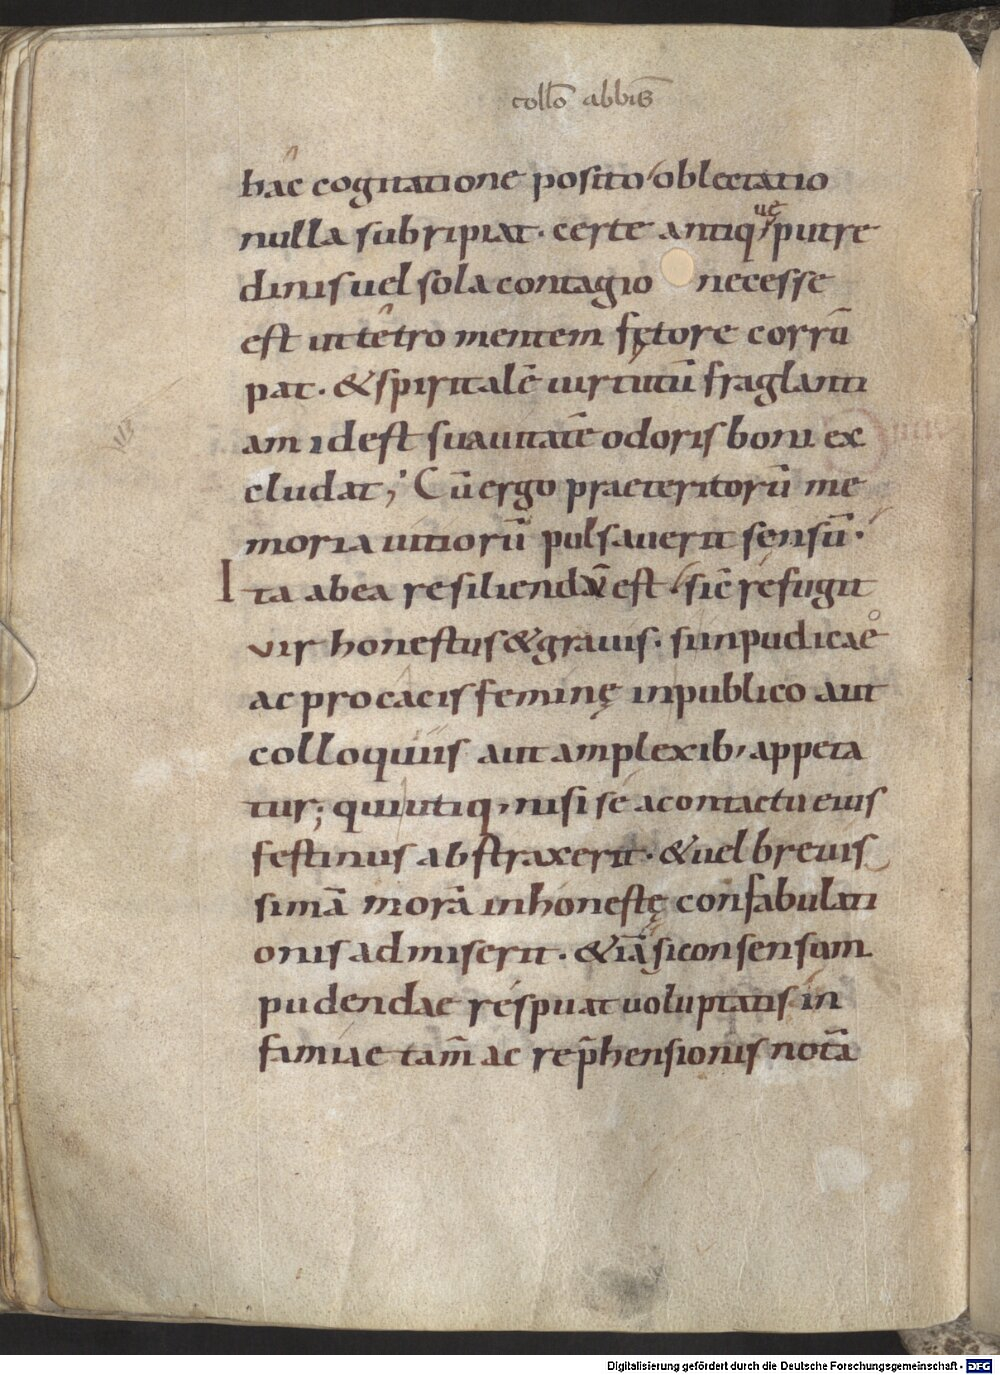 coll̄o abbis̄
hac cogitatione posito oblectatio
nulla subripiat. certe antiq;ue putre
dinis uel sola contagio necesse
est ut tetro mentem fętore corrū
pat. & spiritalē uirtutū fraglanti
am id est suauitatē odoris boni ex
cludat; Cū ergo praeteritorū me
moria uitiorū pulsauerit sensū.
Ita ab ea resiliendū est. sic refugit
vir honestus & grauis. si inpudicae
ac procacis feminę in publico aut
colloquiis aut amplexib; appeta
tur; qui utiq; nisi se a contactu eius
festinus abstraxerit. & uel breuis
simā morā inhonestę confabulati
onis admiserit. & iā si consensum
pudendae respuat uoluptatis in
famiae tam̄ ac rep̄hensionis notā
Digitalisierung gefördert durch die Deutsche Forschungsgemeinschaft - DFG